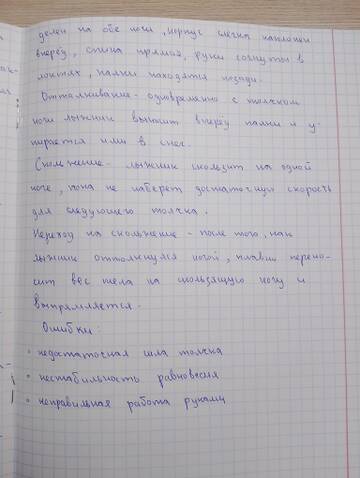 делен на обе ноги, корпус слегка наклонен
вперёд, спина прямая, руки согнуты в
локтях, палки находятся позади.
Отталкивание - одновременно с толчком
ноги лыжник выносит вперёд палки и у-
пирается ими в снег.
Скольжение - лыжник скользит на одной
ноге, пока не наберет достаточную скорость
для следующего толчка.
Переход на скольжение - после того, как
лыжник оттолкнулся ногой, плавно перено-
сит вес тела на скользящую ногу и
выпрямляется.
Ошибки:
• недостаточная сила толчка
• нестабильность равновесия
• неправильная работа руками